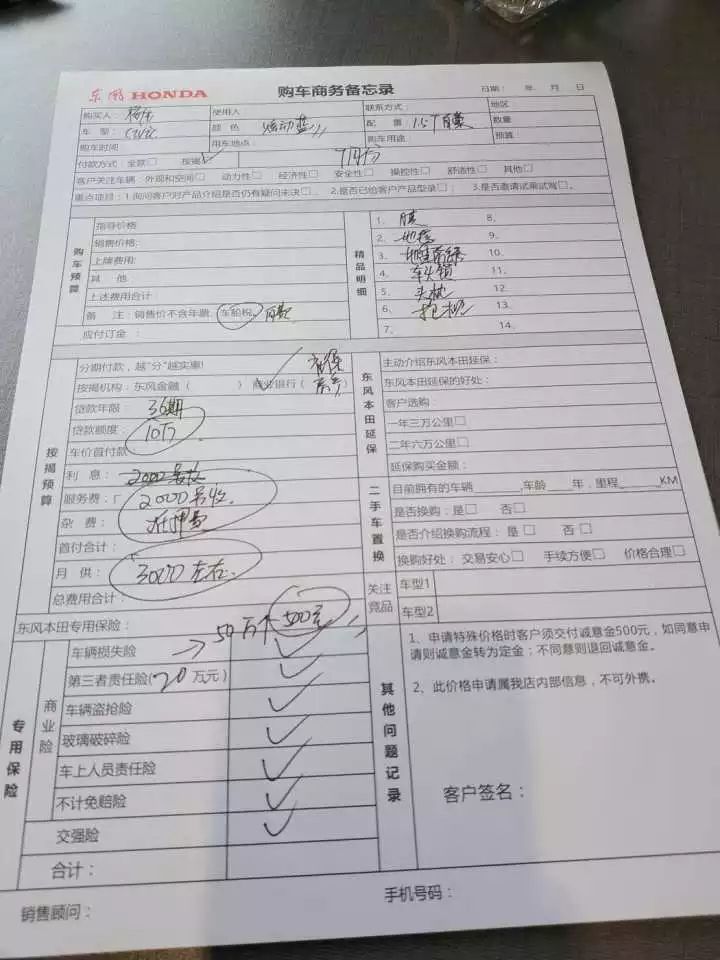 东风 HONDA 购车商务备忘录 日期: 年 月 日
购买人: 使用人 联系方式: 地区
车 型: CIVIC 颜 色 炫动蓝 配 置 1.5T 数量
购车时间 用车地点: 购车用途 预算
付款方式: 全款□ 按揭□
客户关注车辆 外观和空间□ 动力性□ 经济性□ 安全性□ 操控性□ 舒适性□ 其他□
重点项目: 1.询问客户对产品介绍是否仍有疑问未决□; 2.是否已给客户产品型录□; 3.是否邀请试乘试驾□。
购车预算
指导价格
销售价格:
上牌费用:
其 他
上述费用合计
备 注: 销售价不含年票, 车船税,
应付订金:
精品明细
1. 膜 8.
2. 地胶 9.
3. 10.
4. 车头锁 11.
5. 头枕 12.
6. 13.
7. 14.
按揭预算
分期付款, 越“分”越实惠!
按揭机构: 东风金融 ( ) 商业银行 (
贷款年限 36期
贷款额度: 10万
车价首付款
利 息: 2000
服务费: 2000
杂 费: 抵押费
首付合计:
月 供: 3000左右
总费用合计:
东风本田延保
主动介绍东风本田延保:
东风本田延保的好处:
客户选购:
一年三万公里□
二年六万公里□
延保购买金额:
二手车置换
目前拥有的车辆______,车龄____年, 里程______KM
是否换购: 是□ 否□
是否介绍换购流程: 是□ 否□
换购好处: 交易安心□ 手续方便□ 价格合理□
关注竞品
车型1
车型2
东风本田专用保险: 50万 500元
专用保险
商业险
车辆损失险
第三者责任险(20万元)
车辆盗抢险
玻璃破碎险
车上人员责任险
不计免赔险
交强险
合计:
其他问题记录
1、申请特殊价格时客户须交付诚意金500元, 如同意申请则诚意金转为定金; 不同意则退回诚意金。
2、此价格申请属我店内部信息, 不可外携。
客户签名:
销售顾问: 手机号码: